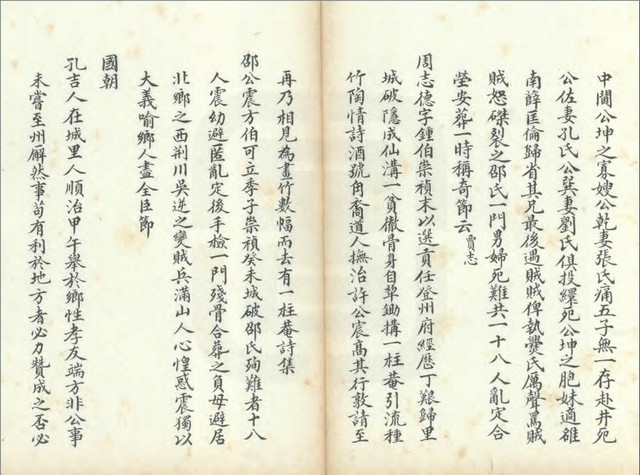 中閫公坤之寡嫂公乾妻張氏痛五子無一存赴井死
公佐妻孔氏公巽妻劉氏俱投繯死公坤之胞妹適雒
南薛匡倫歸省其兄最後過賊賊俾執爨氏厲聲罵賊
賊怒磔裂之邵氏一門男婦死難共一十八人亂定合
塋安葬一時稱奇節云 賈志
周志德字鍾伯崇禎末以選貢任登州府經歷丁艱歸里
城破隱成仙溝一貧徹骨身自犂鋤搆一柱菴引流種
竹陶情詩酒號角裔道人撫治許公宸高其行敦請至
再乃相見為畫竹數幅而去有一柱菴詩集
邵公震方伯可立季子崇禎癸未城破邵氏殉難者十八
人震幼避匿亂定後手檢一門殘骨合葬之負母避居
北鄉之西荊川吳逆之變賊兵滿山人心惶惑震獨以
大義喻鄉人盡全臣節
國朝
孔吉人在城里人順治甲午舉於鄉性孝友端方非公事
未嘗至州廨然事苟有利於地方者必力贊成之否必